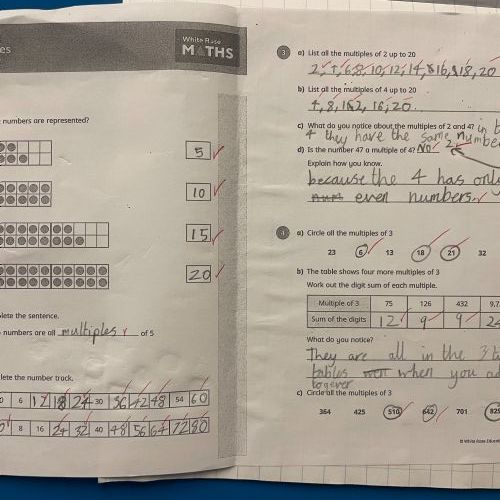 es
White Rose
MATHS
numbers are represented?
5
10
15
20
lete the sentence.
numbers are all multiples of 5
lete the number track.
0 6 12 18 24 30 36 42 48 54 60
0 8 16 24 32 40 48 56 64 72 80
3 a) List all the multiples of 2 up to 20
2, 4, 6, 8, 10, 12, 14, 16, 18, 20
b) List all the multiples of 4 up to 20
4, 8, 12, 16, 20
c) What do you notice about the multiples of 2 and 4? in
4 they have the same numbe
d) Is the number 47 a multiple of 4? No
Explain how you know.
because the 4 has only
even numbers.
a) Circle all the multiples of 3
23 6 13 18 21 32
b) The table shows four more multiples of 3
Work out the digit sum of each multiple.
Multiple of 3 75 126 432 9,7
Sum of the digits 12 9 9 24
What do you notice?
They are all in the 3 t
tables when you ad
together
c) Circle all the multiples of 3
364 425 510 642 701 825
© White Rose Educa